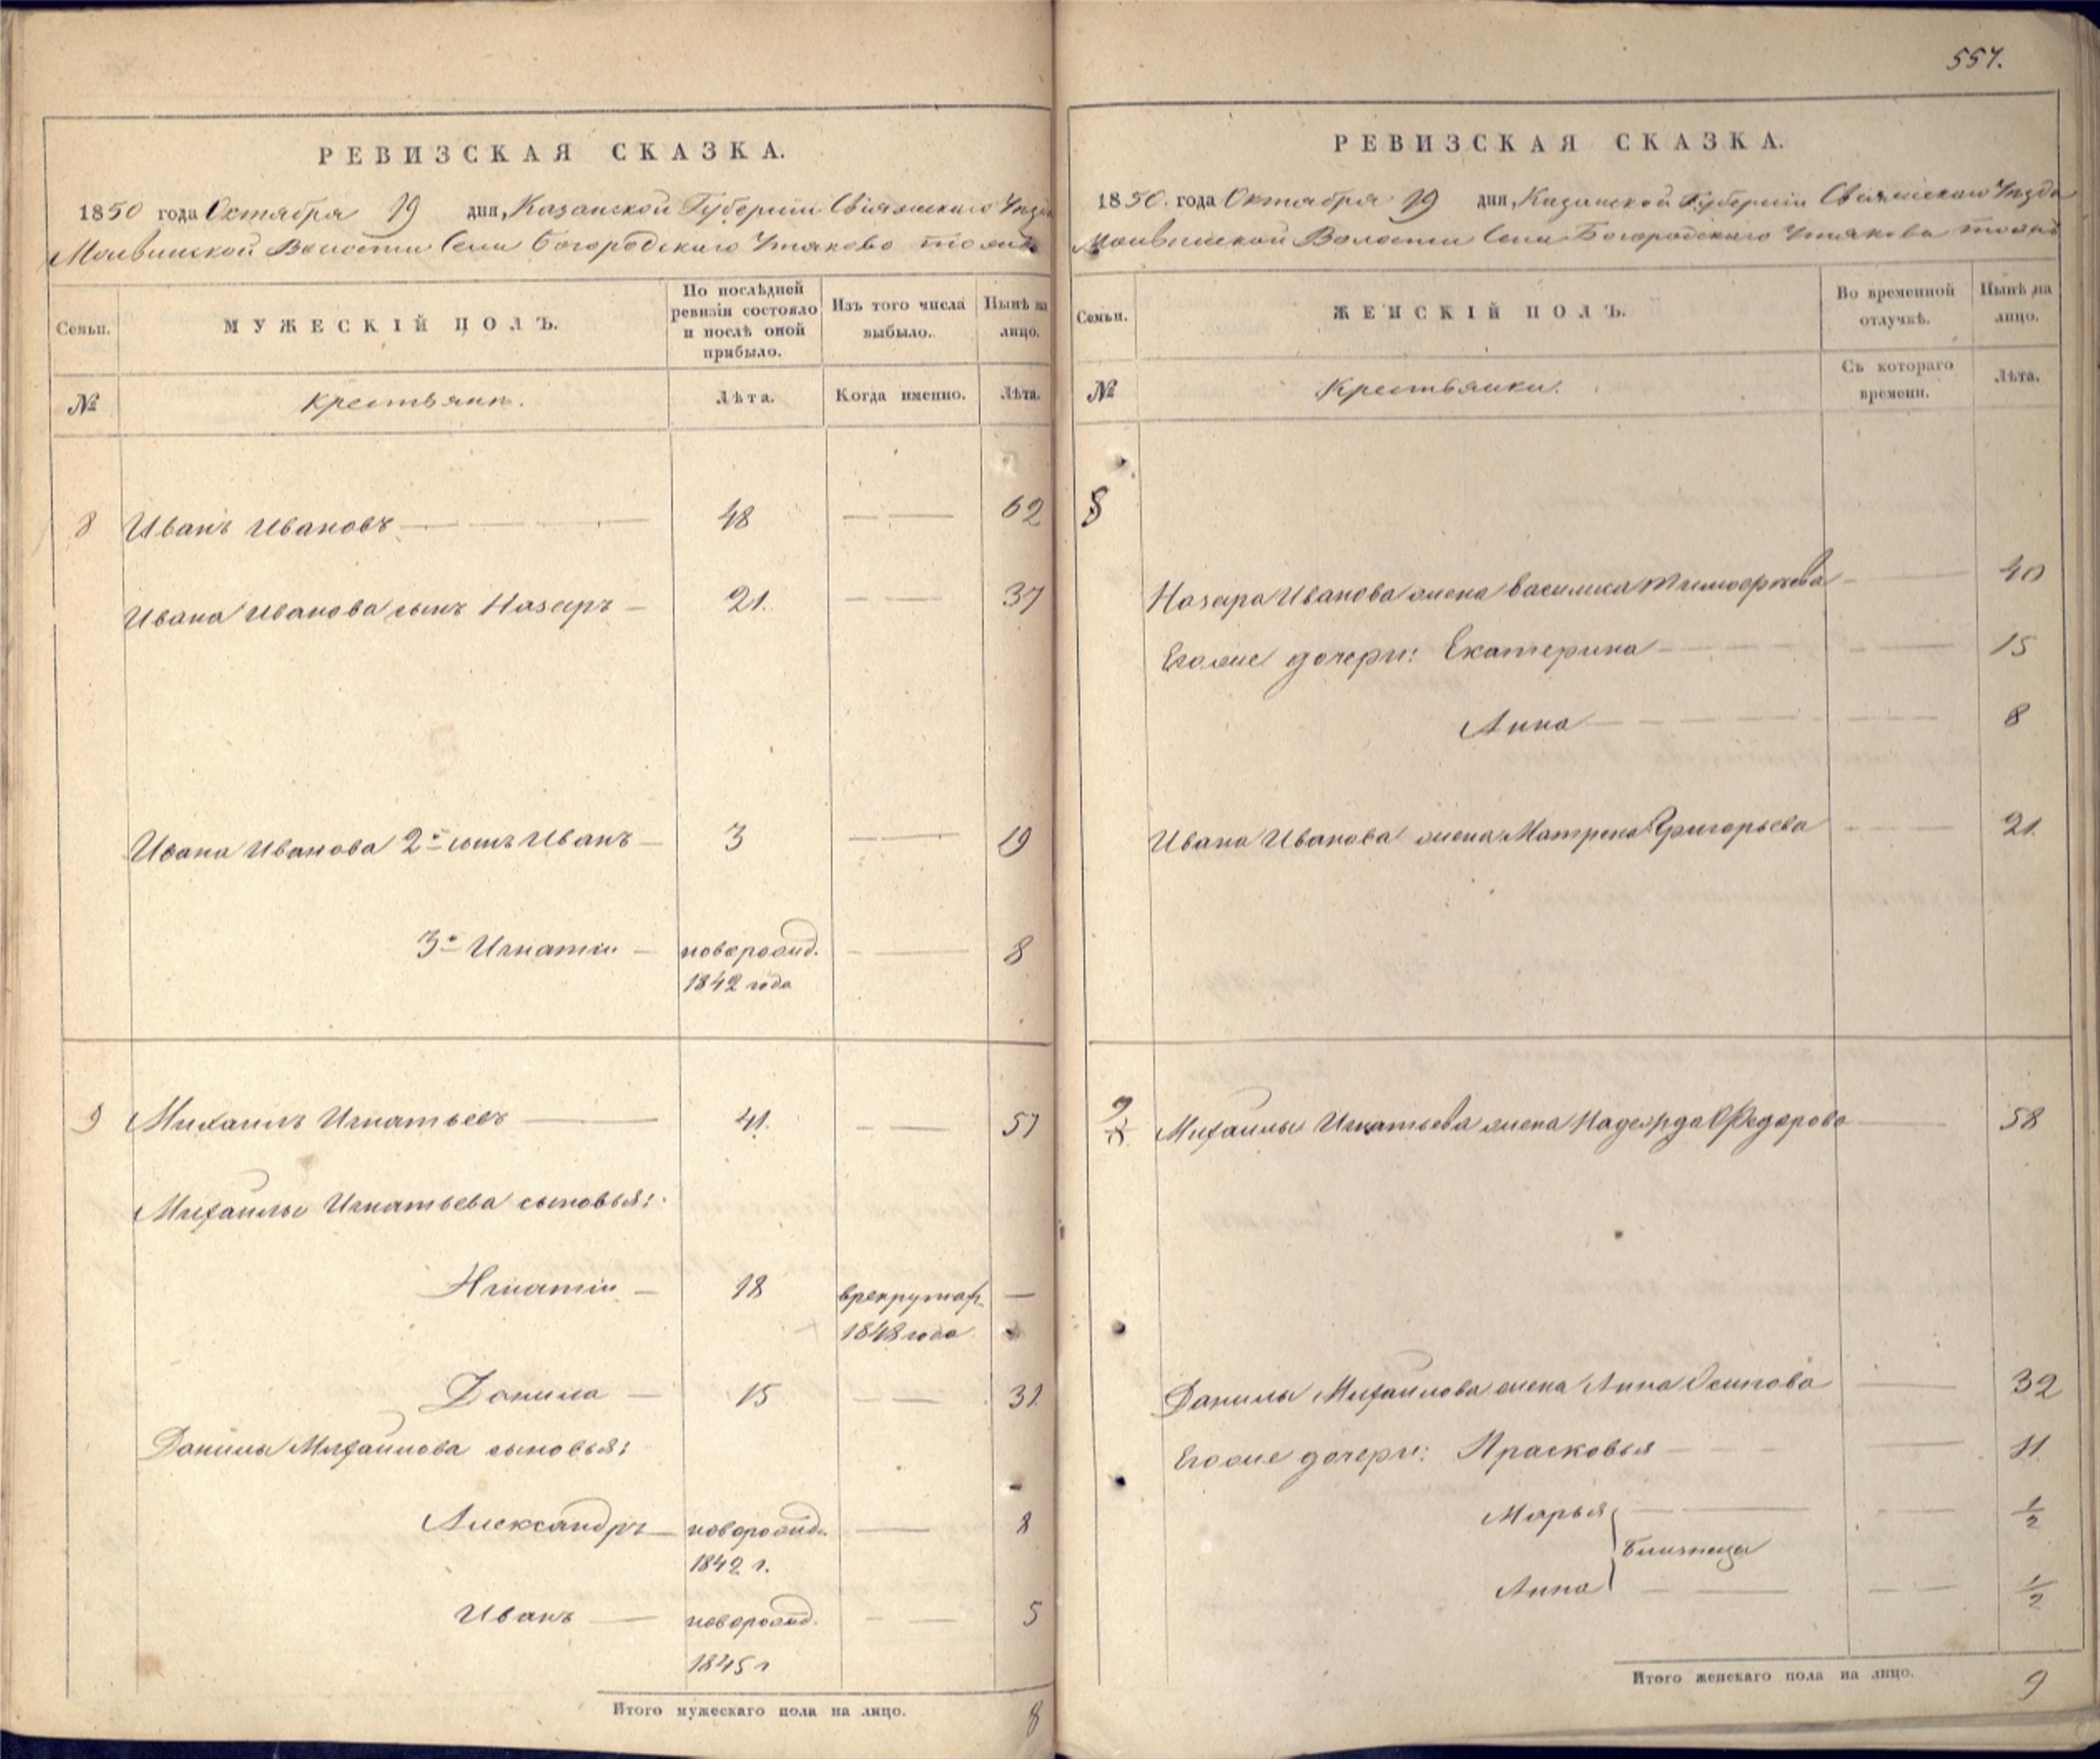 557.
РЕВИЗСКАЯ СКАЗКА.
1850 года Октября 19 дня, Казанской Губерніи Свіяжскаго Уезда
Волости Села Богородскаго Утяково тожъ
Семьи. МУЖЕСКІЙ ПОЛЪ. По послѣдней ревизіи состояло и послѣ оной прибыло. Изъ того числа выбыло. Нынѣ на лицо.
№ Крестьяне. Лѣта. Когда именно. Лѣта.
8 Иванъ Ивановъ 48 62
Ивана Иванова сынъ Назаръ 21. 37
Ивана Иванова 2й сынъ Иванъ 3 19
3й Игнатій новорожд. 8
1842 года
9 Михаилъ Игнатьевъ 41. 57
Михаилы Игнатьева сыновья:
Игнатій 18 врекрутах
1848 года
Данила 15 31
Данилы Михаилова сыновья:
Александръ новорожд. 8
1842 г.
Иванъ новорожд. 5
1845 г
Итого мужескаго пола на лицо. 8
РЕВИЗСКАЯ СКАЗКА.
1850. года Октября 19 дня, Казанской Губерніи Свіяжскаго Уезда
Волости Села Богородскаго Утякова тожъ
Семьи. ЖЕНСКІЙ ПОЛЪ. Во временной отлучкѣ. Нынѣ на лицо.
№ Крестьянки. Съ котораго времени. Лѣта.
8
Назара Иванова жена Василиса Тимофѣева 40
Егоже дочери: Екатерина 15
Анна 8
Ивана Иванова жена Матрена Григорьева 21.
9 Михаилы Игнатьева жена Надежда Федорова 58
Данилы Михаилова жена Анна Осипова 32
Егоже дочери: Прасковья 11.
Марья 1/2
близнецы
Анна 1/2
Итого женскаго пола на лицо. 9